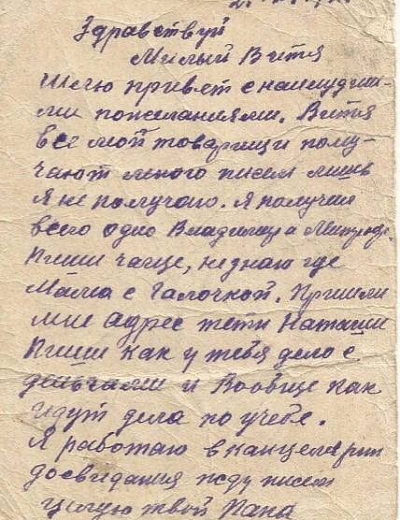 Здравствуй
Милый Витя
Шлю привет с наилудши-
ми пожеланиями. Витя
все мой товарищи полу-
чают много писем лишь
я не получаю. Я получил
всего одно Владимира
Пиши чаще, не знаю где
Мама с Галочкой. Пришли
мне адрес тети Наташи
Пиши как у тебя дело с
и вообще как
идут дела по учебе.
Я работаю в канцелярии
досвидания жду писем
целую твой Папа